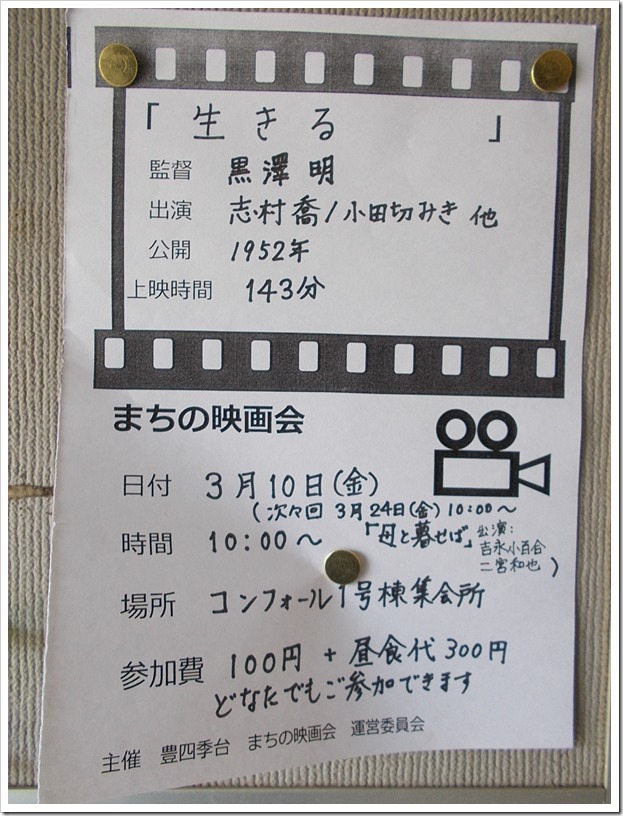 「生きる　　　」
監督　黒澤 明
出演　志村喬/小田切みき 他
公開　1952年
上映時間　143分
まちの映画会
日付　3月10日(金)
(次々回 3月24日(金) 10:00～
時間　10:00～　「母と暮せば」出演:
吉永小百合
二宮和也)
場所　コンフォール1号棟集会所
参加費　100円 + 昼食代300円
どなたでもご参加できます
主催　豊四季台　まちの映画会　運営委員会